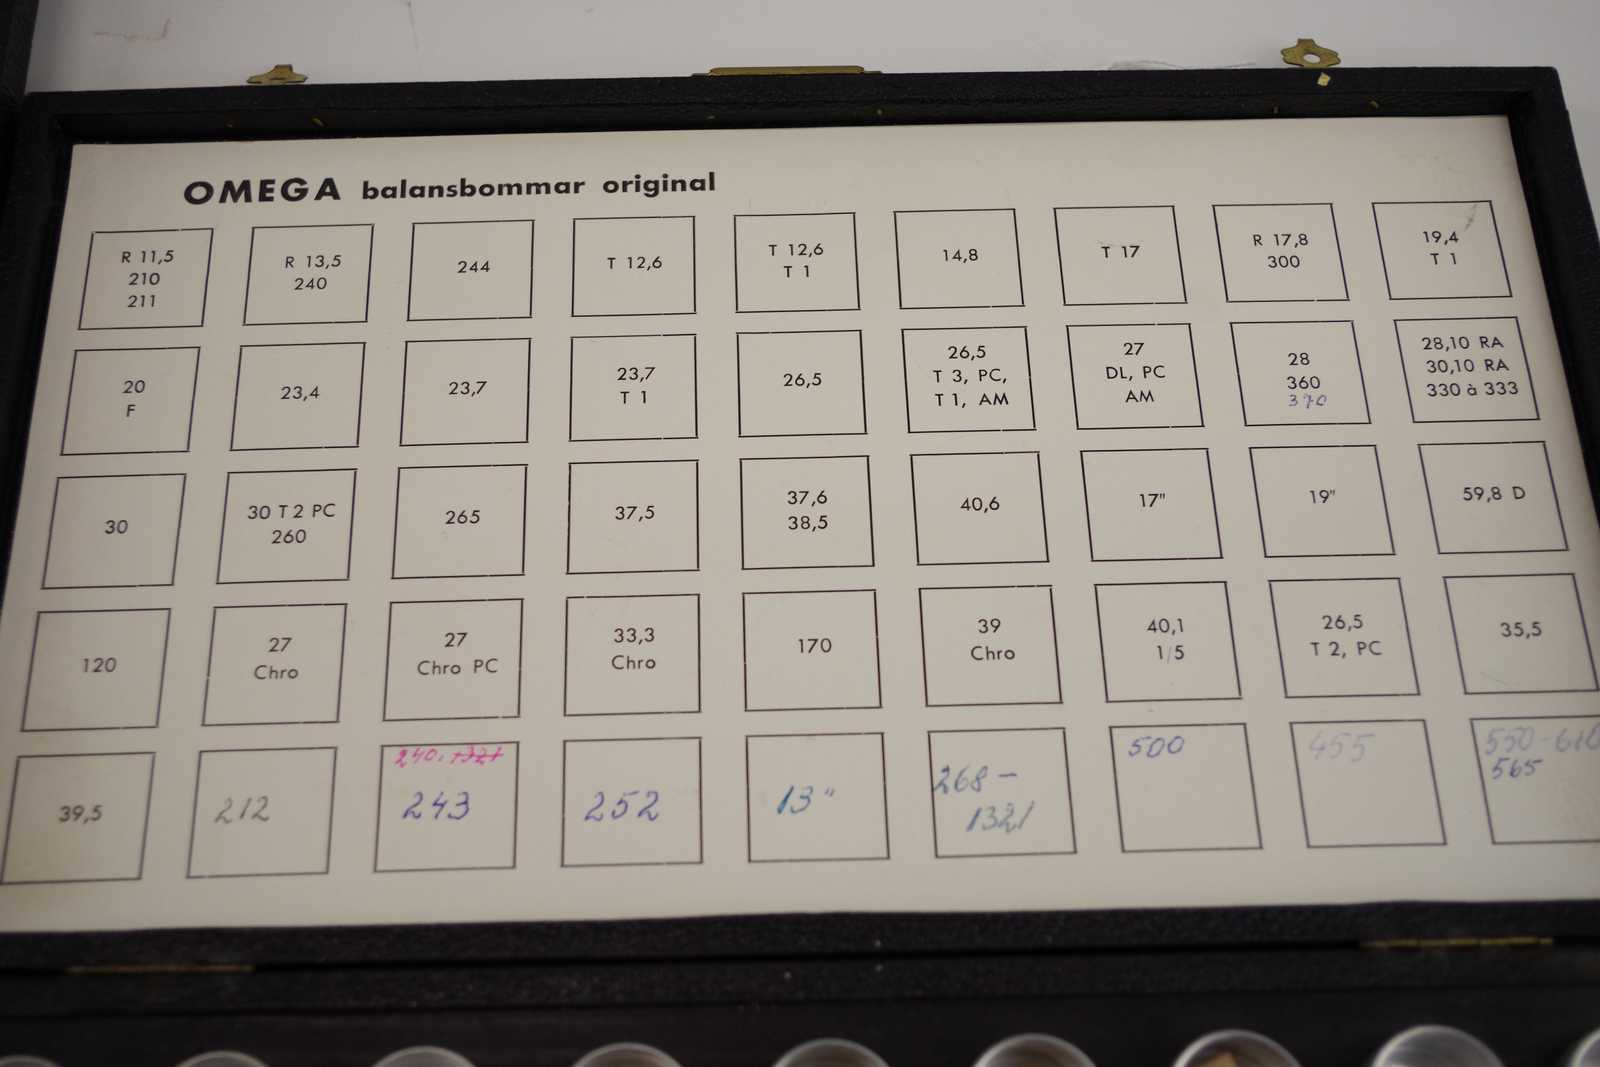 OMEGA balansbommar original
R 11,5
210
211
R 13,5
240
244
T 12,6
T 12,6
T 1
14,8
T 17
R 17,8
300
19,4
T 1
20
F
23,4
23,7
23,7
T 1
26,5
26,5
T 3, PC,
T 1, AM
27
DL, PC
AM
28
360
370
28,10 RA
30,10 RA
330 à 333
30
30 T 2 PC
260
265
37,5
37,6
38,5
40,6
17"
19"
59,8 D
120
27
Chro
27
Chro PC
33,3
Chro
170
39
Chro
40,1
1/5
26,5
T 2, PC
35,5
39,5
212
240.
243
252
13"
268-
1321
500
455
550-610
565